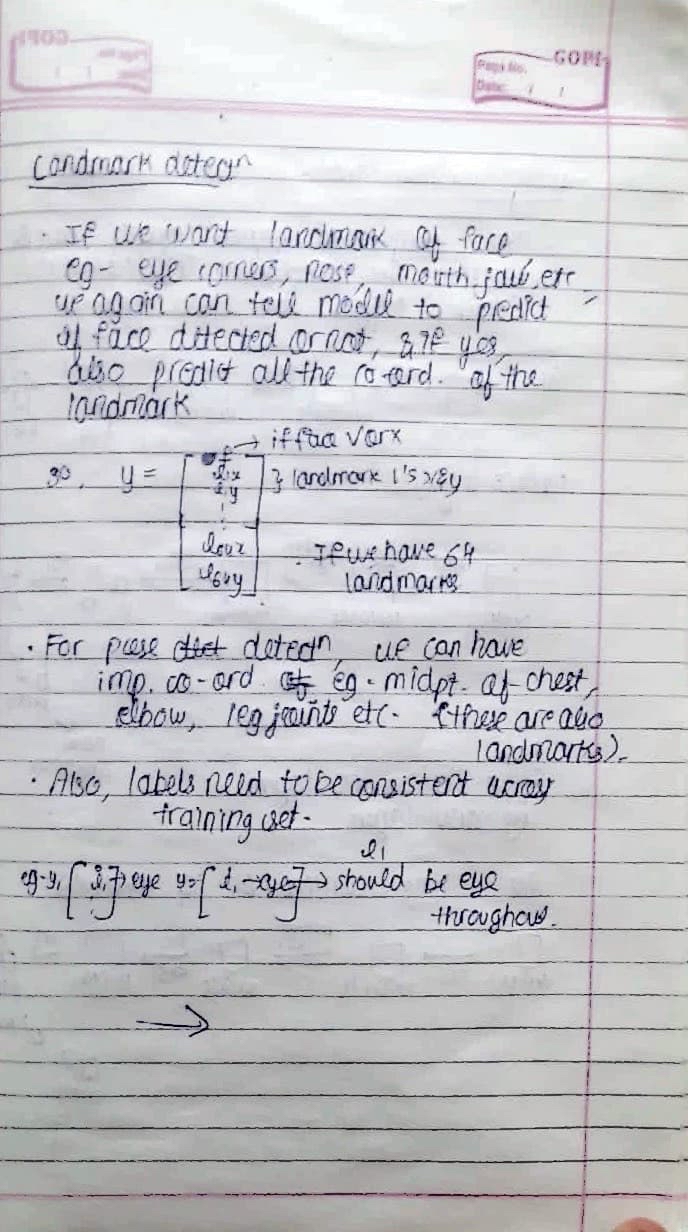 GOPI
Page No.
Date: / /
Landmark detecn
· If we want landmark of face
eg- eye corners, nose, mouth, jaw, etc
we again can tell modell to predict
if face ditected or not, & if yes,
also predict all the co-ord. of the
landmark
f → if face
so, y = l1x } landmark 1's x & y
l1y
l64x · If we have 64
l64y landmarks
· For detectn, we can have
imp. co-ord eg - midpt. of chest,
elbow, leg joints etc. (these are also
landmarks).
· Also, labels need to be consistent
training set.
l1
eg- y1 [ l1 → eye y2 [ l1 → eye ] → should be eye
throughout.
→